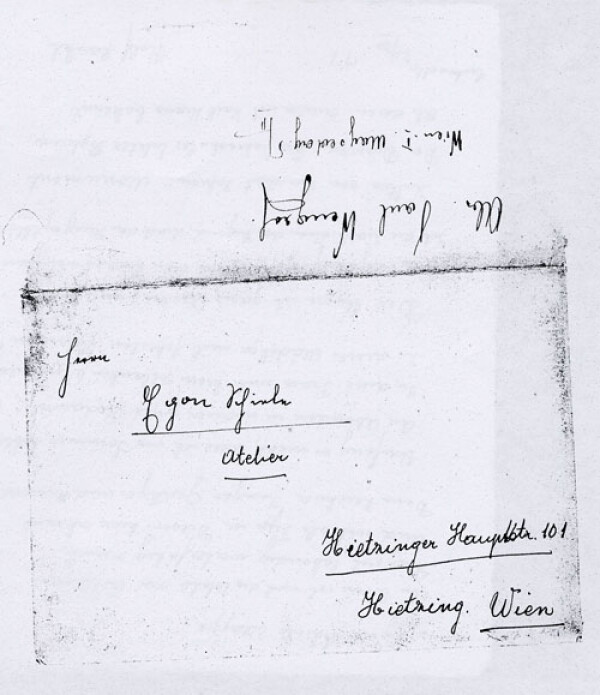 Abs. Paul Wengraf
Wien. I. Maysederg.
Herrn
Egon Schiele
Atelier
Hietzinger Hauptstr. 101
Hietzing. Wien